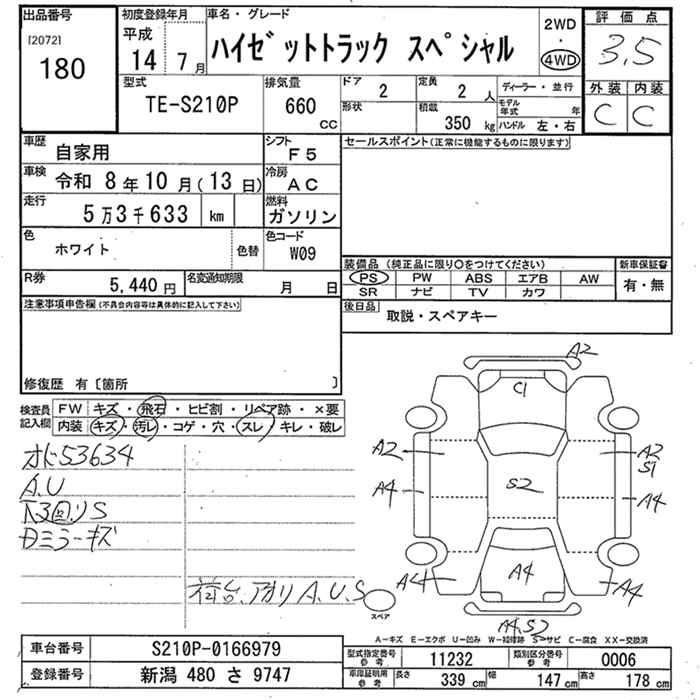 出品番号
[2072]
180
初度登録年月
平成
14 7月
車名・グレード
ハイゼットトラック スペシャル
2WD
・
4WD
評価点
3.5
外装 内装
C C
型式
TE-S210P
排気量
660
CC
ドア
2
形状
定員
2 人
積載
350 kg
ディーラー・並行
モデル年式 年
ハンドル 左・右
車歴
自家用
シフト
F5
車検
令和 8年10月(13日)
冷房
AC
走行
5万3千633 km
燃料
ガソリン
色
ホワイト
色替
色コード
W09
R券
5,440円
名変通知期限
月 日
セールスポイント(正常に機能するものに限ります)
装備品(純正品に限り○をつけてください)
PS PW ABS エアB AW
SR ナビ TV カワ
新車保証書
有・無
後日品
取説・スペアキー
注意事項申告欄(不具合内容等は具体的に記入して下さい)
修復歴 有〔箇所 〕
検査員記入欄
FW キズ・飛石・ヒビ割・リペア跡・×要
内装 キズ・汚レ・コゲ・穴・スレ・キレ・破レ
オド53634
A.U
下回りS
Dミラーキズ
荷台、アオリA.U.S
A2
C1
A2
A2
S1
S2
A4
A4
A4
A4
A4
スペア
A4,S2
A-キズ E-エクボ U-凹み W-補修跡 S-サビ C-腐食 XX-交換済
車台番号
S210P-0166979
登録番号
新潟 480 さ 9747
型式指定番号
参考
11232
類別区分番号
参考
0006
車庫証明用
参考
長さ
339 cm
幅
147 cm
高さ
178 cm